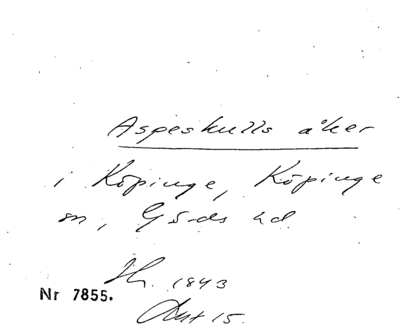 Aspeskulls åker
i Köpinge, Köpinge
sn, Gärds hd
Hr. 1843
Nr 7855.
Akt 15.